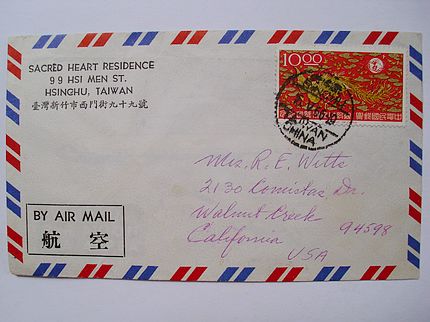 SACRED HEART RESIDENCE
99 HSI MEN ST.
HSINCHU, TAIWAN
臺灣新竹市西門街九十九號
10.00
CHINA
Mrs. R. E. Witts
2130 Comistas Dr.
Walnut Creek
California 94598
USA
BY AIR MAIL
航空